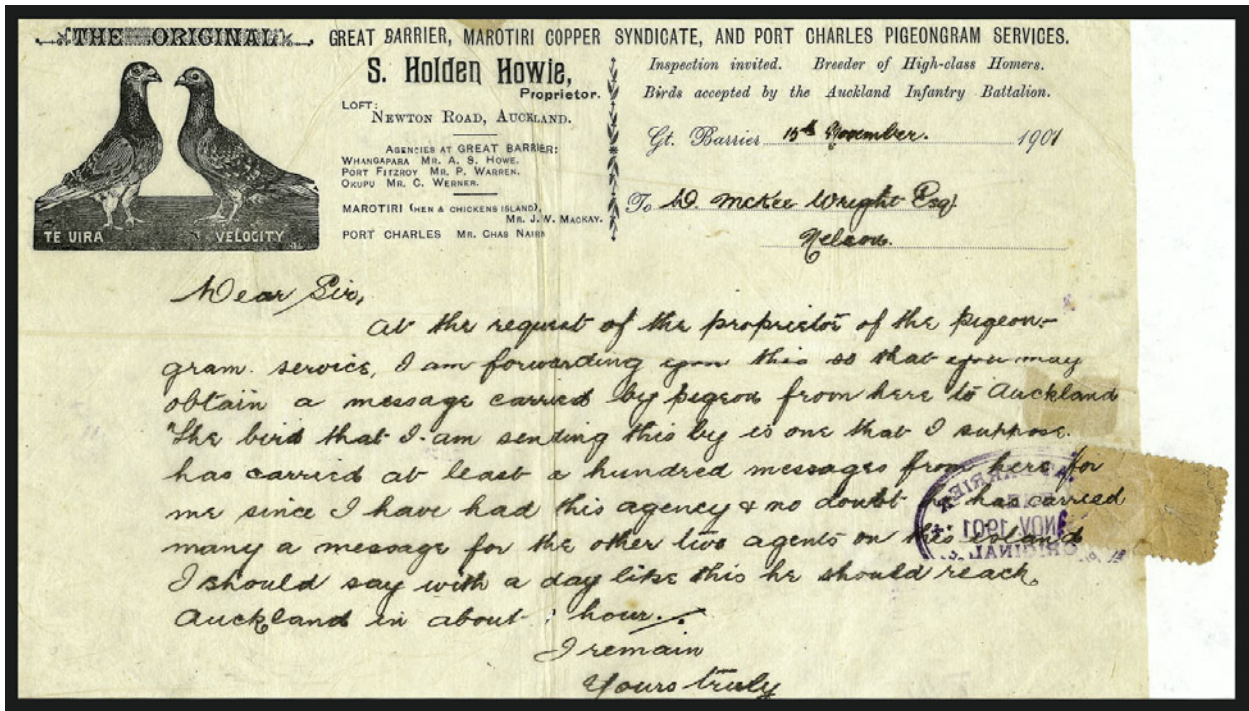 THE ORIGINAL
GREAT BARRIER, MAROTIRI COPPER SYNDICATE, AND PORT CHARLES PIGEONGRAM SERVICES.
S. Holden Howie,
Proprietor.
LOFT:
NEWTON ROAD, AUCKLAND.
AGENCIES AT GREAT BARRIER:
WHANGAPARA MR. A. S. HOWE.
PORT FITZROY MR. P. WARREN.
OKUPU MR. C. WERNER.
MAROTIRI (HEN & CHICKENS ISLAND),
MR. J. W. MACKAY.
PORT CHARLES MR. CHAS NAIRN
TE UIRA VELOCITY
Inspection invited. Breeder of High-class Homers.
Birds accepted by the Auckland Infantry Battalion.
Gt. Barrier 15th November. 1901
To D. McKee Wright Esq.
Nelson.
Dear Sir,
At the request of the proprietor of the Pigeon-
gram service, I am forwarding you this so that you may
obtain a message carried by pigeon from here to Auckland
The bird that I am sending this by is one that I suppose
has carried at least a hundred messages from here for
me since I have had this agency & no doubt he has carried
many a message for the other two agents on this island
I should say with a day like this he should reach
Auckland in about hour.
I remain
Yours truly
BARRIER
NOV. 1901
ORIGINAL